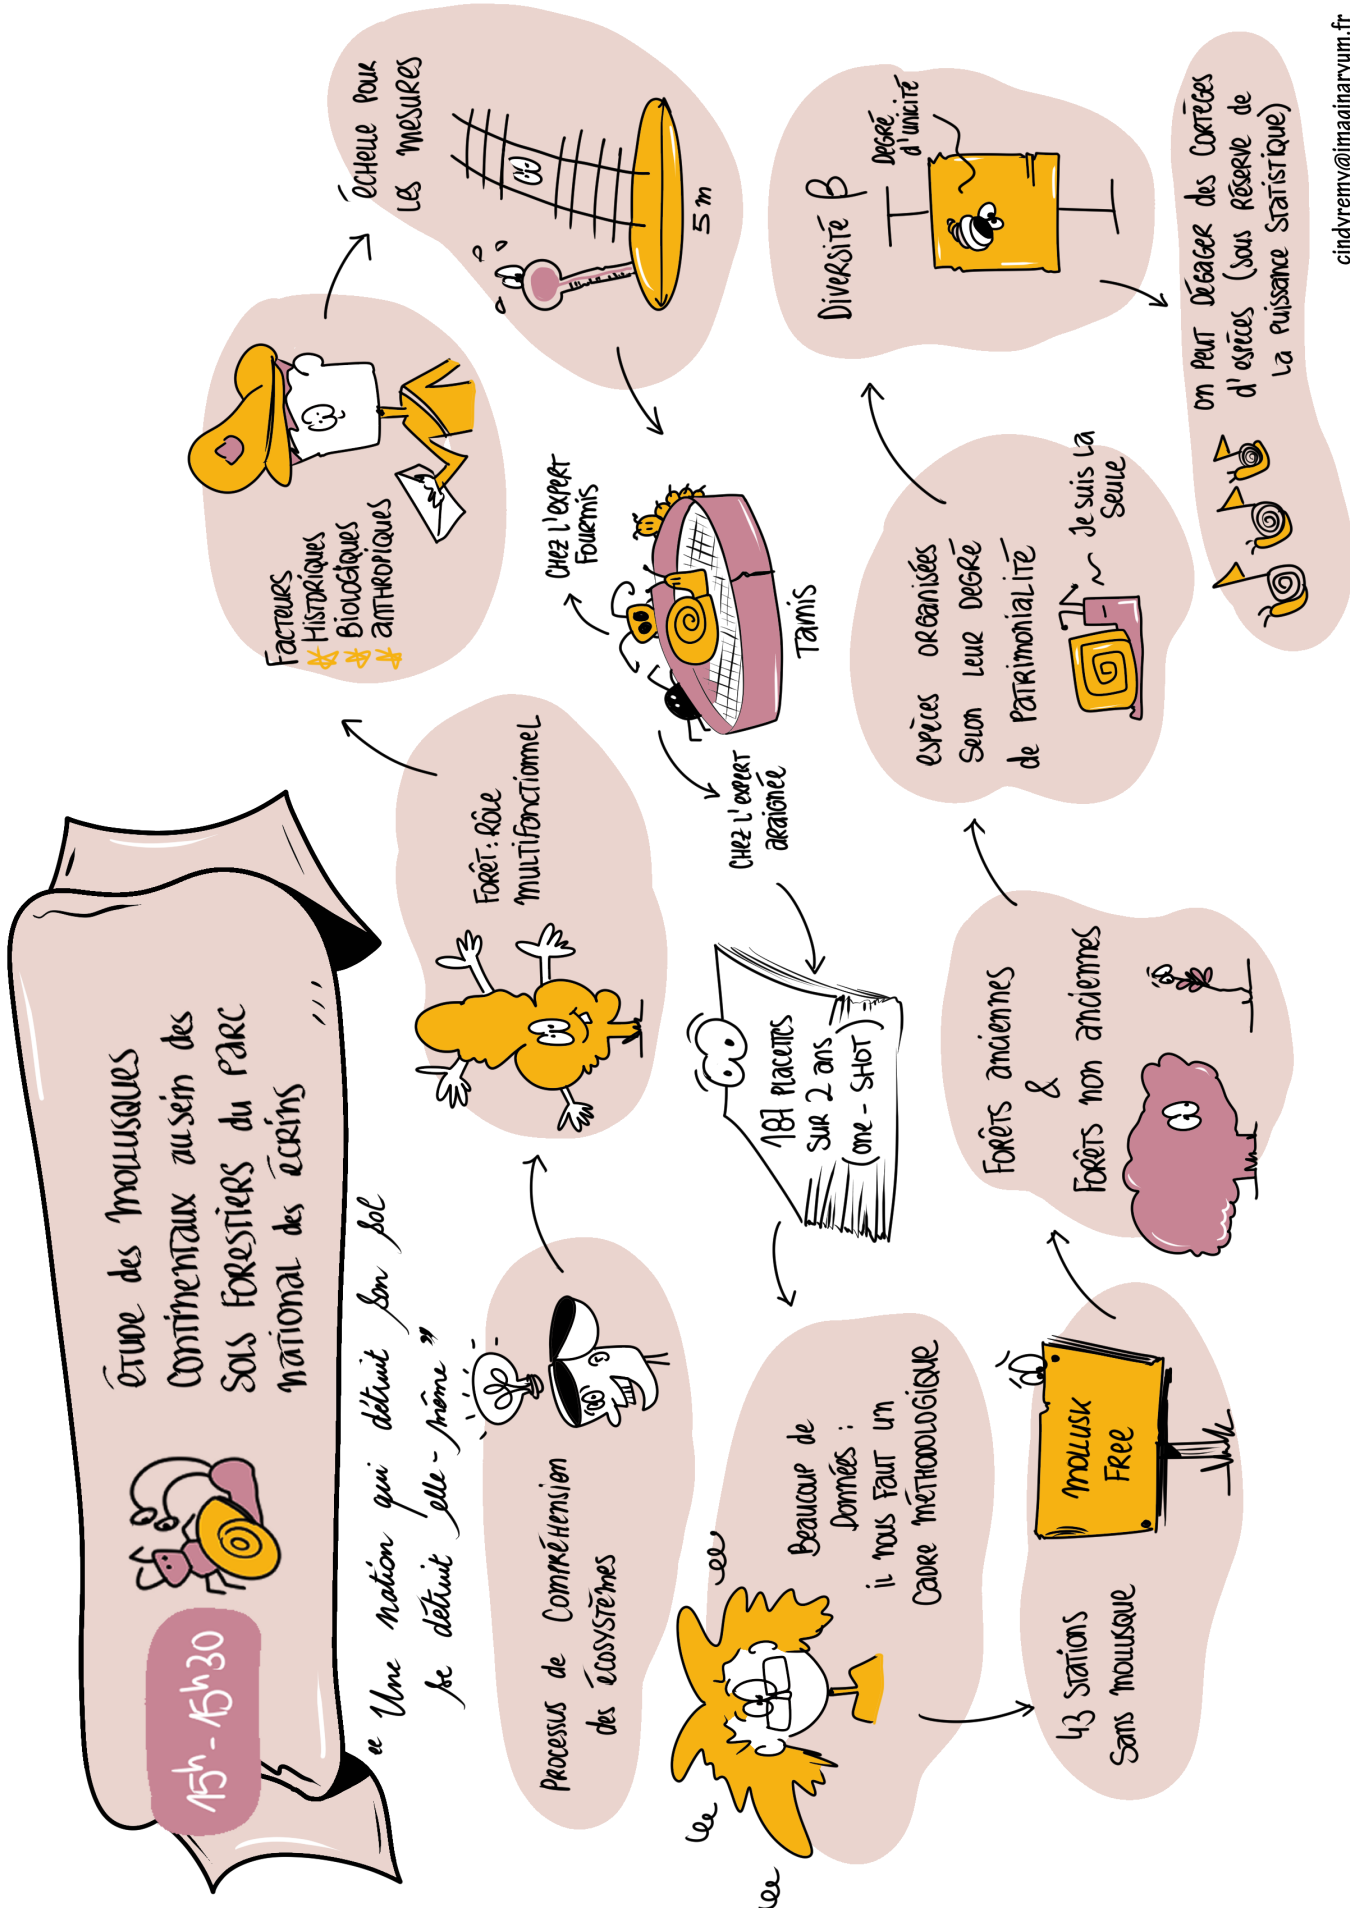 15h - 15h30
étude des mollusques
continentaux au sein des
sols forestiers du parc
national des écrins
...
" Une nation qui détruit son sol
se détruit elle-même "
Processus de compréhension
des écosystèmes
Forêt : rôle
multifonctionnel
Facteurs
Historiques
Biologiques
anthropiques
échelle pour
les mesures
5 m
chez l'expert
fourmis
Tamis
chez l'expert
araignée
187 placettes
sur 2 ans
(one-shot)
Beaucoup de
données :
il nous faut un
cadre méthodologique
43 stations
sans mollusque
mollusk
free
Forêts anciennes
&
Forêts non anciennes
espèces organisées
selon leur degré
de patrimonialité
Je suis la
seule
Diversité β
degré
d'unicité
on peut dégager des cortèges
d'espèces (sous réserve de
la puissance statistique)
cindyremy@imaginaryum.fr